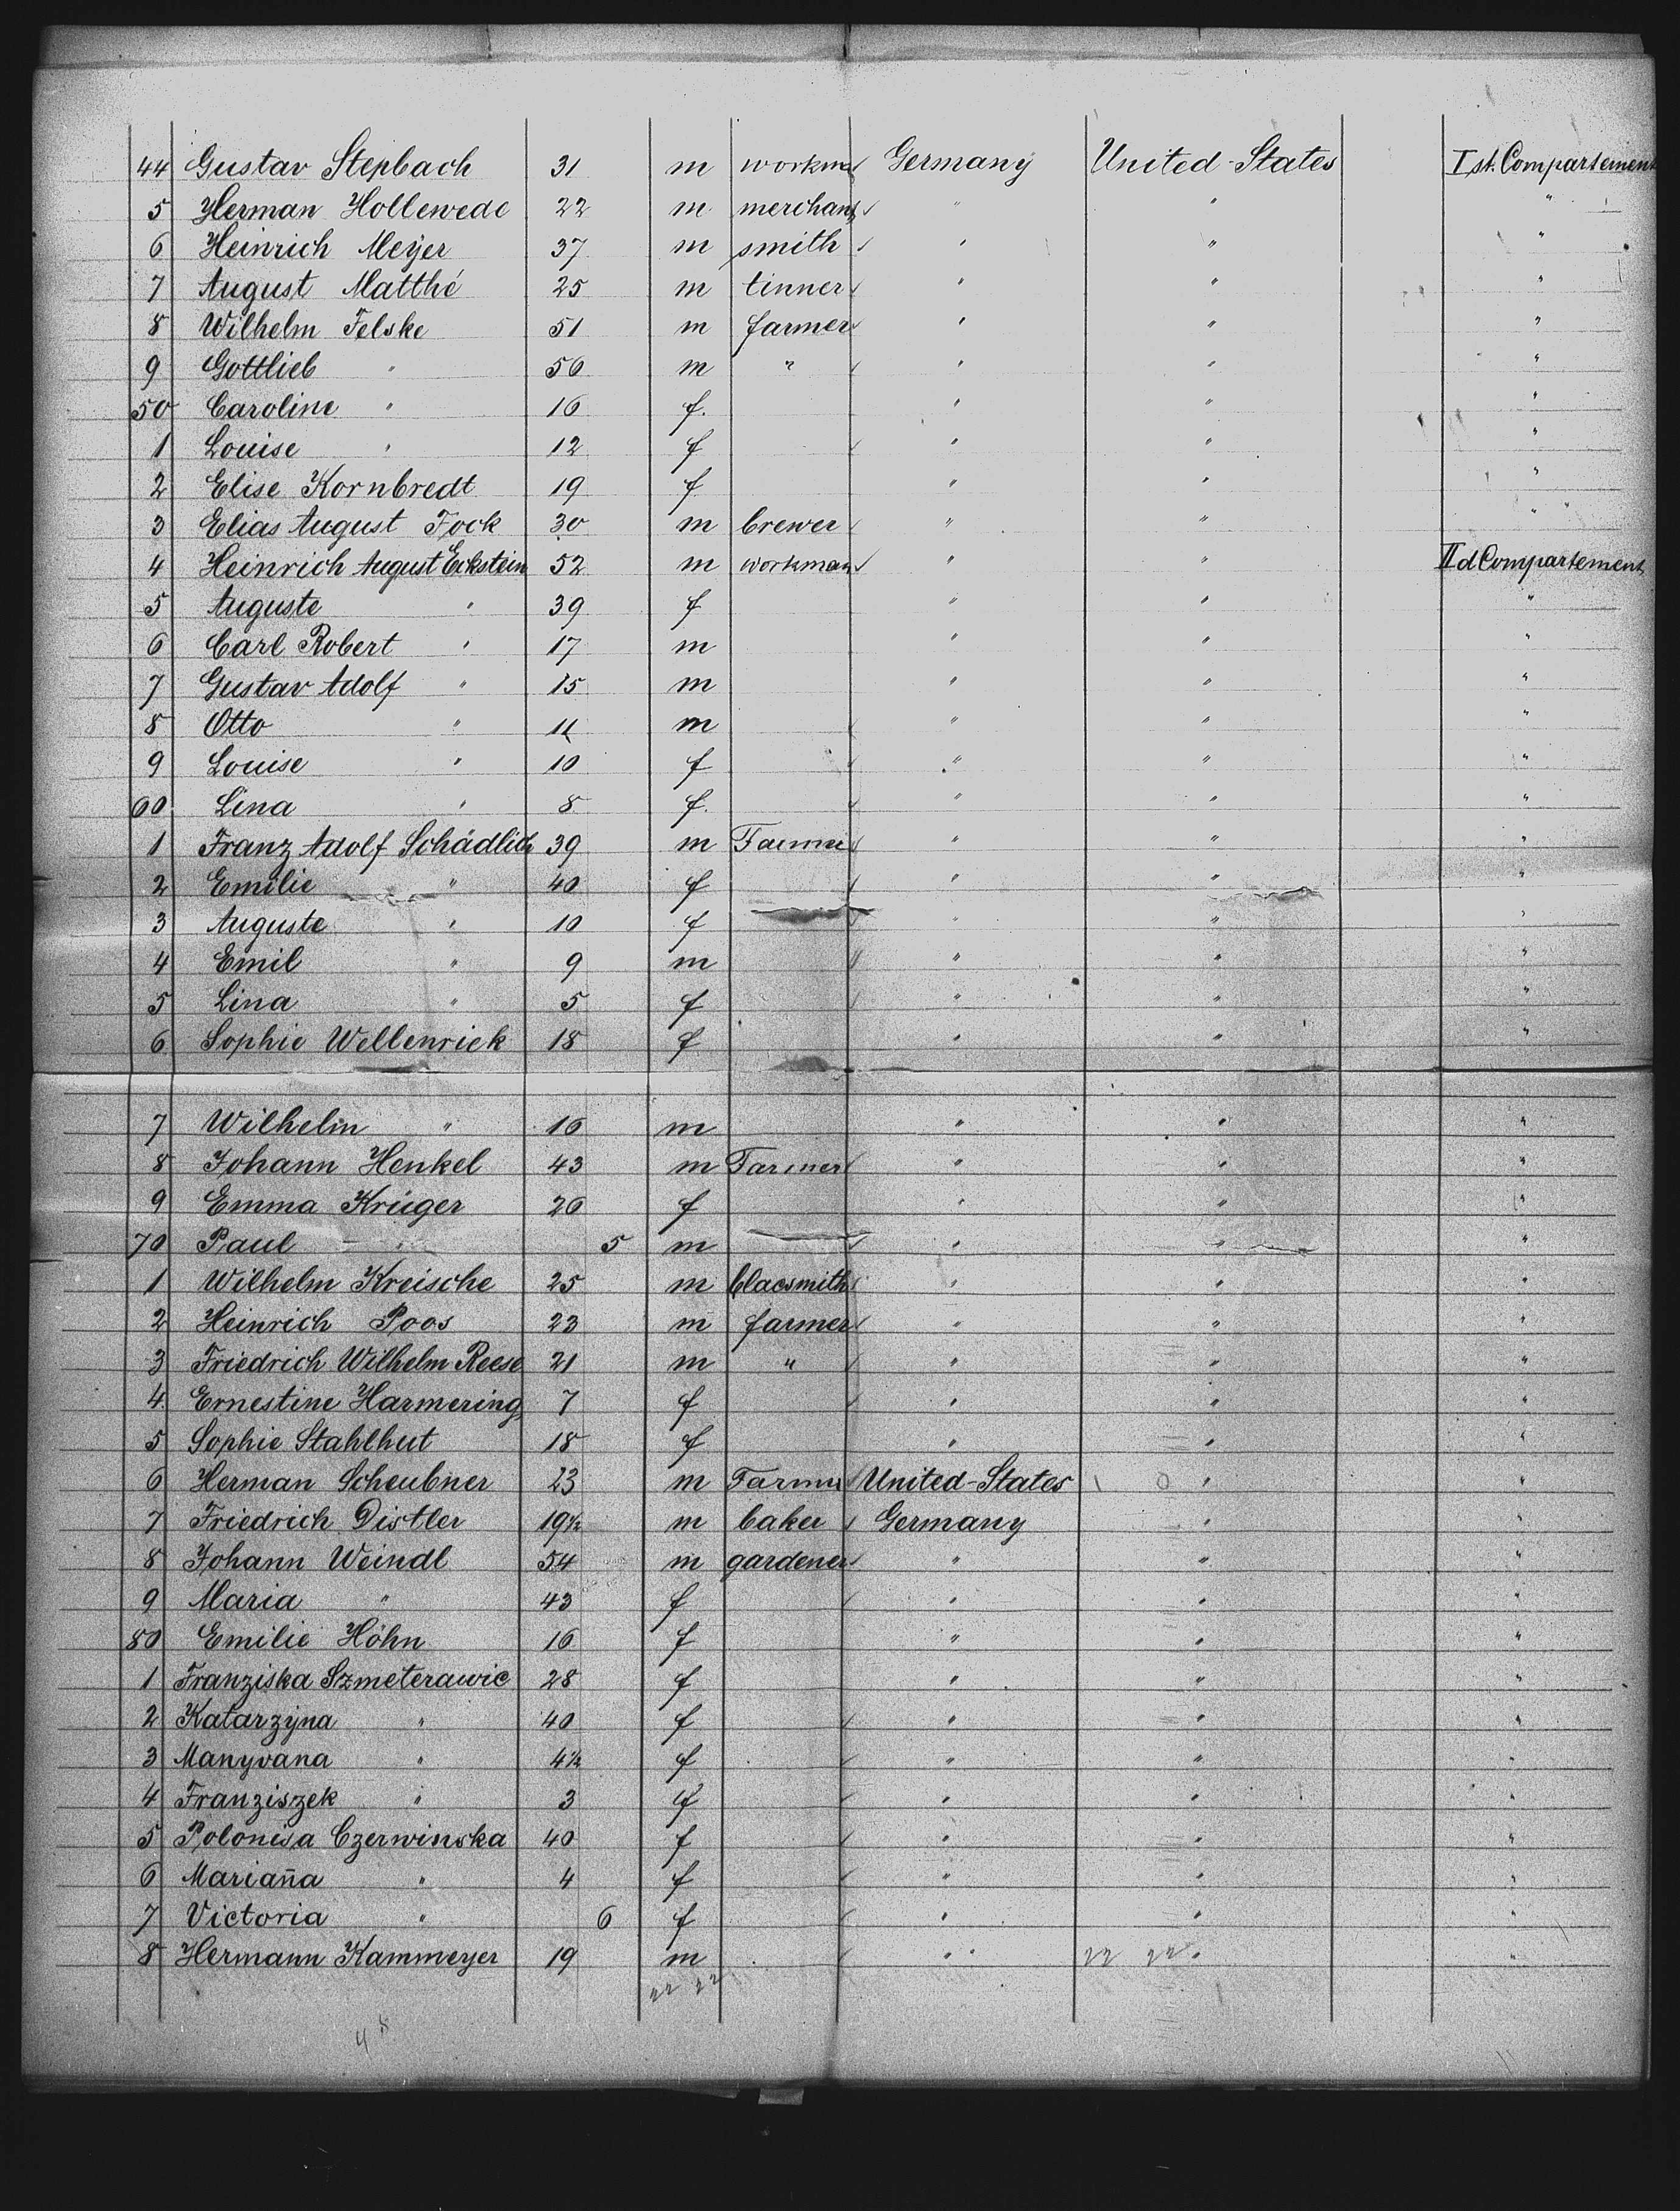 44 Gustav Stepbach 31 m workman Germany United-States Ist. Compartement
5 Herman Hollewede 22 m merchant " " "
6 Heinrich Meÿer 37 m smith " " "
7 August Matthé 25 m tinner " " "
8 Wilhelm Felske 51 m farmer " " "
9 Gottlieb " 56 m " " " "
50 Caroline " 16 f. " " "
1 Louise " 12 f " " "
2 Elise Kornbredt 19 f " " "
3 Elias August Fock 30 m brewer " " "
4 Heinrich August Eckstein 52 m workman " " IId Compartement
5 Auguste " 39 f " " "
6 Carl Robert " 17 m " " "
7 Gustav Adolf " 15 m " " "
8 Otto " 11 m " " "
9 Louise " 10 f " " "
60 Lina " 8 f. " " "
1 Franz Adolf Schädlich 39 m Farmer " " "
2 Emilie " 40 f " " "
3 Auguste " 10 f " " "
4 Emil " 9 m " " "
5 Lina " 5 f " " "
6 Sophie Wellenriek 18 f " " "
7 Wilhelm " 16 m " " "
8 Johann Henkel 43 m Farmer " " "
9 Emma Krüger 26 f " " "
70 Paul " 5 m " " "
1 Wilhelm Kreische 25 m blacsmith " " "
2 Heinrich Poos 23 m farmer " " "
3 Friedrich Wilhelm Reese 21 m " " " "
4 Ernestine Harmering 7 f " " "
5 Sophie Stahlhut 18 f " " "
6 Herman Scheubner 23 m Farmer United-States " "
7 Friedrich Distler 19½ m baker Germany " "
8 Johann Weindl 54 m gardener " " "
9 Maria " 43 f " " "
80 Emilie Höhn 16 f " " "
1 Franziska Szmeterawic 28 f " " "
2 Katarzÿna " 40 f " " "
3 Manyvana " 4½ f " " "
4 Franziszek " 3 f " " "
5 Polonisa Czerwinska 40 f " " "
6 Marian̄a " 4 f " " "
7 Victoria " 6 f " " "
8 Hermann Kammeyer 19 m " " "
22 22
22 22